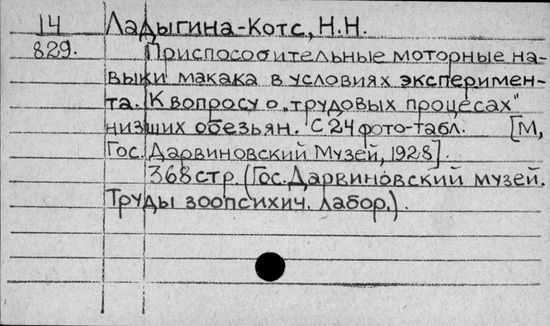 14 Ладыгина-Котс, Н.Н.
829. Приспособительные моторные на-
выки макака в условиях эксперимен-
та. К вопросу о „трудовых процесах"
низших обезьян. С 24 фото-табл. [М,
Гос. Дарвиновский Музей, 1928].
368 стр. (Гос. Дарвиновский музей.
Труды зоопсихич. лабор.).